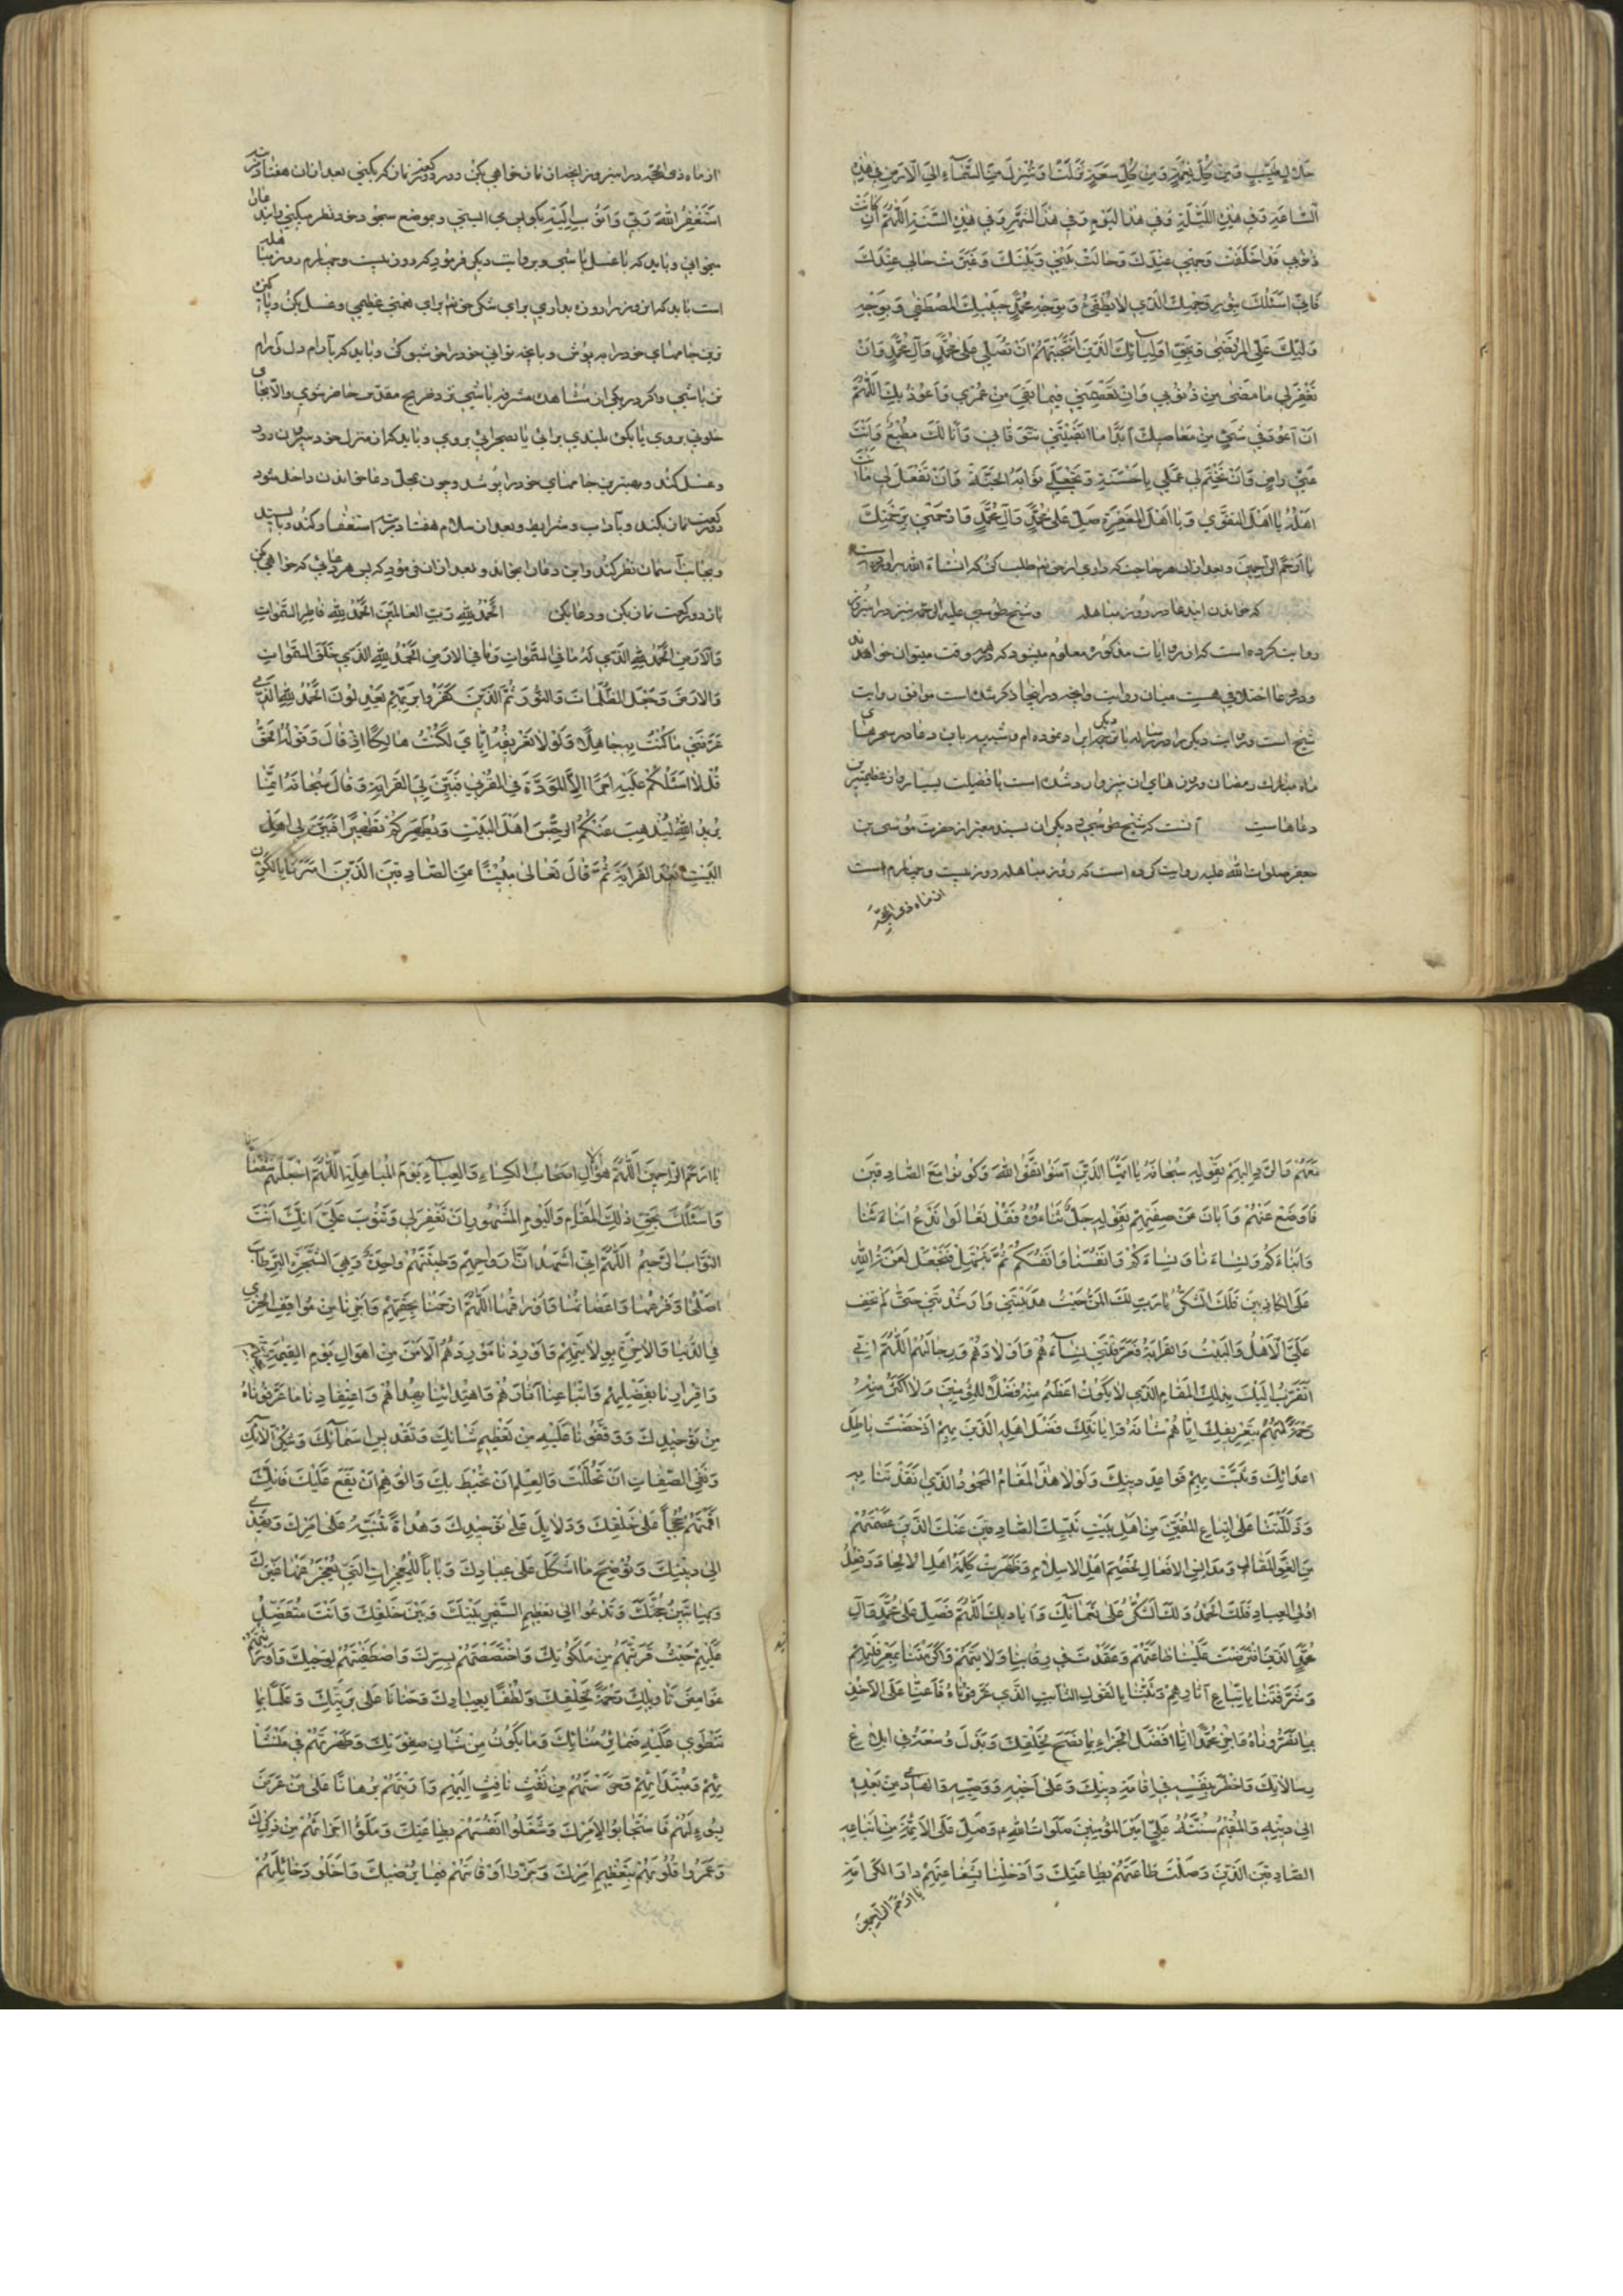 كل مصيبة ومن كل سعة نزلت او تنزل من السماء الي الارض في هذه
الساعة وفي هذه الليلة وفي هذا اليوم وفي هذا الشهر وفي هذه السنة اللهم ان كانت
ذنوبي قد اخلقت وجهي عندك وحالت بيني وبينك وغيرت حالي عندك
فاني اسئلك بنور وجهك الذي لا يطفئ وبوجه محمد حبيبك المصطفي وبوجه
وليك علي المرتضي وبحق اوليائك الذين انتجبتهم ان تصلي علي محمد وآل محمد وان
تغفر لي ما مضي من ذنوبي وان تعصمني فيما بقي من عمري واعوذ بك اللهم
ان اعود في شئ من معاصيك ابدا ما ابقيتني حتي توفاني وانا لك مطيع وانت
عني راض وان تختم لي عملي باحسنه وتجعل لي ثوابه الجنة وان تفعل بي ما انت
اهله يا اهل التقوي ويا اهل المغفرة صل علي محمد وآل محمد وارحمني برحمتك
يا ارحم الراحمين وبعد ازان هر حاجت كه داري از حق تعالي طلب كن كه انشاء الله برآورده است
كه خواندن ايندعا در روز مباهله وشيخ طوسي عليه الرحمه نيز
روايت كرده است كه از روايات مذكوره معلوم ميشود كه در هر وقت ميتوان خواند
ودر دعا اختلافي هست ميان روايت وآنچه در اينجا ذكر شد است موافق روايت
شيخ است وروايت ديگر را در رساله ايراد نموده ام وشبيه باين دعا در سحرهاي
ماه مبارك رمضان وروزهاي ان نيز وارد شده است با فضيلت بسيار وان عظيمترين
دعاهاست آنست كه شيخ طوسي وديگران بسند معتبر از حضرت موسي بن
جعفر صلوات الله عليه روايت كرده است كه روز مباهله روز بيست وچهارم است
از ماه ذي الحجه
از ماه ذي الحجه در اين روز آنچه از نماز خواهي بكن ودر دو ركعت نماز كه بكني بعد ازان هفتاد مرتبه
استغفر الله ربي واتوب اليه بگو پس مي ايستي وبموضع سجود خود نظر ميكني
ميخواني وبايد كه با غسل باشي وبروايت ديگر فرمود كه روز بيست وچهارم روز مباهله
است بايد كه اين روز را روزه بداري براي شكر حق تعالي براي نعمتي عظيم وغسل بكن وپاكيزه
ترين جامهاي خود را بپوش وبآنچه تواني خود را خوشبو كن وبايد كه بآرام دل وآرام
تن باشي واگر در يكي از مشاهد مشرفه باشي نزد ضريح مقدس حاضر شوي والا بجاي
خلوتي بروي يا بكوه بلندي برآئي يا بصحرائي بروي وبايد كه از منزل خود بيرون رود
وغسل كند وبهترين جامهاي خود را بپوشد وچون بمحل دعا خواندن داخل شود
دو ركعت نماز بكند وبآداب وشرايط وبعد از سلام هفتاد مرتبه استغفار كند
وبجانب آسمان نظر كند واين دعا را بخواند وبعد ازان فرمود كه پس هر دعائي كه خواهي بكن
باز دو ركعت نماز بكن ودعا بكن الحمد لله رب العالمين الحمد لله فاطر السموات
والارض الحمد لله الذي له ما في السموات وما في الارض الحمد لله الذي خلق السموات
والارض وجعل الظلمات والنور ثم الذين كفروا بربهم يعدلون الحمد لله الذي
عرفني ما كنت به جاهلا ولولا تعريفه اياي لكنت هالكا اذ قال وقوله الحق
قل لا اسئلكم عليه اجرا الا المودة في القربي فبين لي القرابة وقال سبحانه انما
يريد الله ليذهب عنكم الرجس اهل البيت ويطهركم تطهيرا فبين لي اهل
البيت بعد القرابة ثم قال تعالي مبينا عن الصادقين الذين امرنا بالكون
معهم والرد اليهم بقوله سبحانه يا ايها الذين آمنوا اتقوا الله وكونوا مع الصادقين
فاوضح عنهم وابان عن صفتهم بقوله جل ثناؤه فقل تعالوا ندع ابناءنا
وابناءكم ونساءنا ونساءكم وانفسنا وانفسكم ثم نبتهل فنجعل لعنة الله
علي الكاذبين فلك الشكر يا رب ولك المن حيث هديتني وارشدتني حتي لم يخف
علي الاهل والبيت والقرابة فعرفتني نساءهم واولادهم ورجالهم اللهم اني
اتقرب اليك بذلك المقام الذي لا يكون اعظم منه فضلا للمؤمنين ولا اكثر منه
رحمة لهم بتعريفك اياهم شانه وابانتك فضل اهله الذين بهم ادحضت باطل
اعدائك وثبت بهم قواعد دينك ولولا هذا المقام المحمود الذي انقذتنا به
ودللتنا علي اتباع المحقين من اهل بيت نبيك الصادقين عنك الذين عصمتهم
من لغو المقال ومدانس الافعال لخصم اهل الاسلام وظهرت كلمة اهل الالحاد وفعل
اولي العناد فلك الحمد ولك المن ولك الشكر علي نعمائك واياديك اللهم فصل علي محمد وآل
محمد الذين افترضت علينا طاعتهم وعقدت في رقابنا ولايتهم واكرمتنا بمعرفتهم
وشرفتنا باتباع آثارهم وثبتنا بالقول الثابت الذي عرفوناه فاعنا علي الاخذ
بما بصروناه واجز محمدا عنا افضل الجزاء بما نصح لخلقك وبذل وسعه في ابلاغ
رسالاتك واخطر بنفسه في اقامة دينك وعلي اخيه ووصيه والهادي من بعده
الي دينه والمقيم سنته علي امير المؤمنين صلوات الله عليه وصل علي الائمة من ابنائه
الصادقين الذين وصلت طاعتهم بطاعتك وادخلنا بشفاعتهم دار الكرامة
يا ارحم الراحمين
يا ارحم الراحمين اللهم هؤلاء اصحاب الكساء والعباء يوم المباهلة اللهم اجعلهم شفعاءنا
واسئلك بحق ذلك المقام واليوم المشهود ان تغفر لي وتتوب علي انك انت
التواب الرحيم اللهم اني اشهد ان ارواحهم وطينتهم واحدة وهي الشجرة التي طاب
اصلها وفرعها واغصانها واوراقها اللهم ارحمنا بحقهم واجرنا من مواقف الخزي
في الدنيا والاخرة بولايتهم واوردنا موارد الامن من اهوال يوم القيمة بحبهم
واقرارنا بفضلهم واتباعنا آثارهم واهتدائنا بهداهم واعتقادنا ما عرفوناه
من توحيدك ووقفونا عليه من تعظيم شانك وتقديس اسمائك وشكر آلائك
ونفي الصفات ان تحلك والعلم ان يحيط بك والوهم ان يقع عليك فانك
اقمتهم حججا علي خلقك ودلائل علي توحيدك وهداة تنبه علي امرك وتهدي
الي دينك وتوضح ما اشكل علي عبادك وبابا للمعجزات التي يعجز عنها غيرك
وبها تبين حجتك وتدعوا الي تعظيم السفير بينك وبين خلقك وانت متفضل
عليهم حيث قربتهم من ملكوتك واختصصتهم بسرك واصطفيتهم لوحيك واورثتهم
غوامض تاويلك رحمة لخلقك ولطفا بعبادك وحنانا علي بريتك وعلما بما
تنطوي عليه ضمائر امنائك وما يكون من شان صفوتك وطهرتهم في منشأ
ئهم ومبتدائهم وحرستهم من نفث نافث اليهم واريتهم برهانا علي من عرض
بسوء لهم فاستجابوا لامرك وشغلوا انفسهم بطاعتك وملؤا اجزائهم من ذكرك
وعمروا قلوبهم بتعظيم امرك وجزوا اوقاتهم فيما يرضيك واخلوا دخائلهم